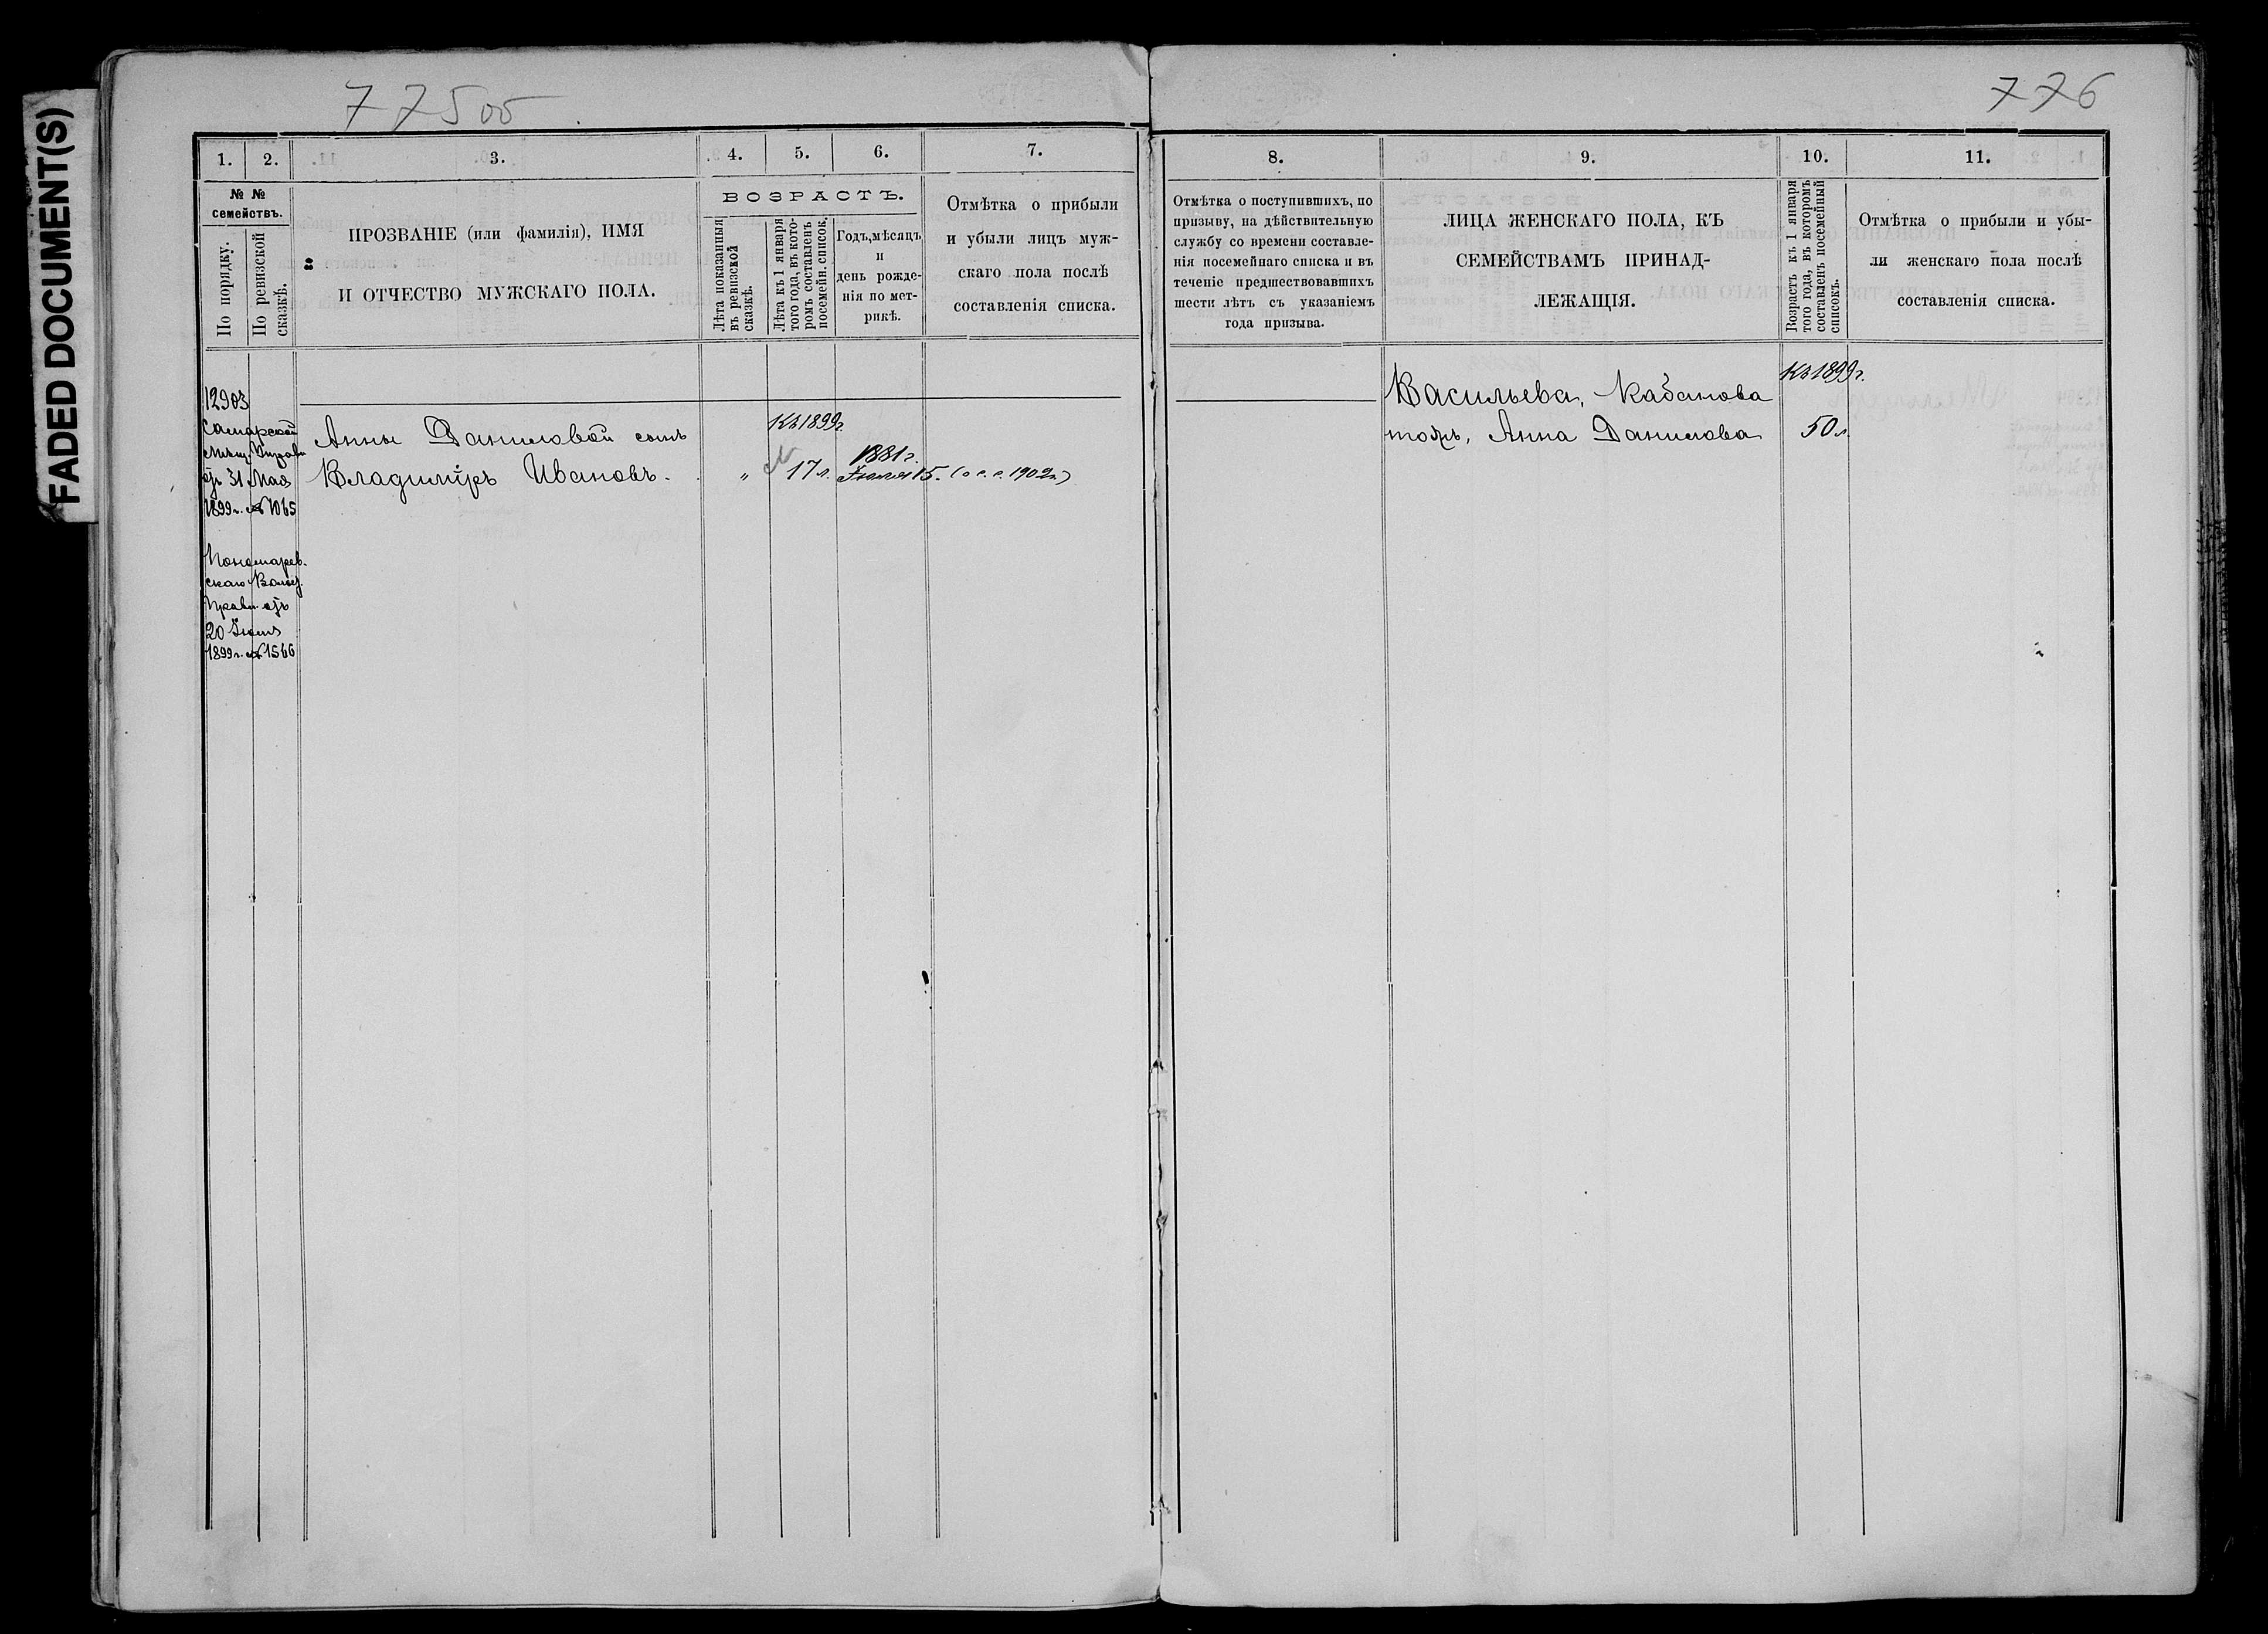 FADED DOCUMENT(S)
775 об
776
1. 2. 3. 4. 5. 6. 7.
№ № семействъ.
По порядку.
По ревизской сказкѣ.
ПРОЗВАНІЕ (или фамилія), ИМЯ
И ОТЧЕСТВО МУЖСКАГО ПОЛА.
ВОЗРАСТЪ.
Лѣта показанныя
въ ревизской
сказкѣ.
Лѣта къ 1 января
того года, въ кото-
ромъ составленъ
посемейн. список.
Годъ, мѣсяцъ
и
день рожде-
нія по мет-
рикѣ.
Отмѣтка о прибыли
и убыли лицъ муж-
скаго пола послѣ
составленія списка.
12903
Самарской
Мѣщ. Управы
отъ 31 Мая
1899 г. № 1065
Пономарев-
скаго Волост.
Правл. отъ
20 Іюня
1899 г. № 1566
Анны Даниловой сынъ
Владиміръ Ивановъ.
Къ 1899 г.
" 17 л.
1881 г.
Іюля 15. (о с. с. 1902 г.)
8. 9. 10. 11.
Отмѣтка о поступившихъ, по
призыву, на дѣйствительную
службу со времени составле-
нія посемейнаго списка и въ
теченіе предшествовавшихъ
шести лѣтъ съ указаніемъ
года призыва.
ЛИЦА ЖЕНСКАГО ПОЛА, КЪ
СЕМЕЙСТВАМЪ ПРИНАД-
ЛЕЖАЩІЯ.
Возрастъ къ 1 января
того года, въ которомъ
составленъ посемейный
списокъ.
Отмѣтка о прибыли и убы-
ли женскаго пола послѣ
составленія списка.
Васильева, Кабанова
тожъ, Анна Данилова
Къ 1899 г.
50 л.